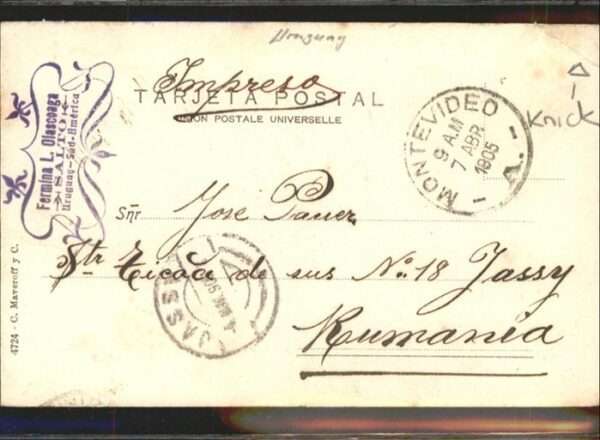 Uruguay
Impreso
TARJETA POSTAL
UNION POSTALE UNIVERSELLE
Fermina L. Olascoaga
SALTO
Uruguay - Sud-América
MONTEVIDEO
9 AM
7 ABR
1905
A.
Knick
Snr Jose Pauer
Str de sus No. 18 Jassy
Rumania
JASSY
4724 - C. Maveroff y C.